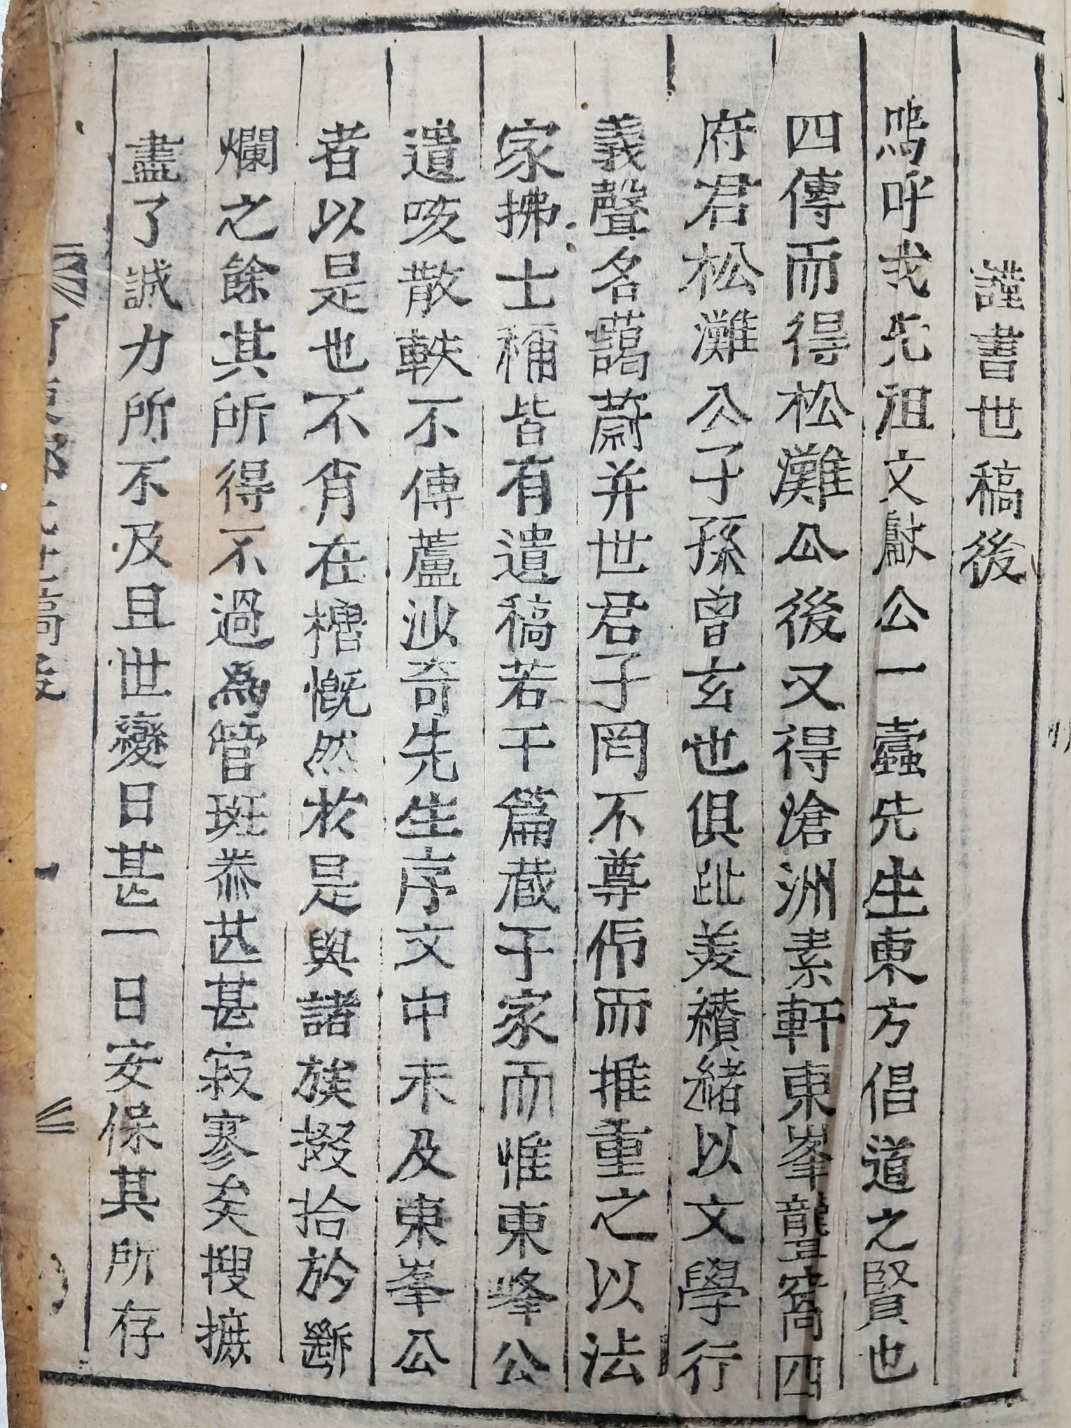 謹書世稿後
嗚呼我先祖文獻公一蠹先生東方倡道之賢也
四傳而得松灘公後又得滄洲素軒東峯龍窩四
府君松灘公子孫曾玄也俱趾美纘緒以文學行
義聲名藹蔚并世君子罔不尊仰而推重之以法
家拂士稱皆有遺稿若干篇藏于家而惟東峰公
遺咳散軼不傳蘆沙奇先生序文中未及東峯公
者以是也不肖在櫓慨然於是與諸族掇拾於斷
爛之餘其所得不過為管斑泰甚甚寂寥矣搜摭
盡了誠力所不及且世變日甚一日安保其所存
河東鄭氏世稿卷